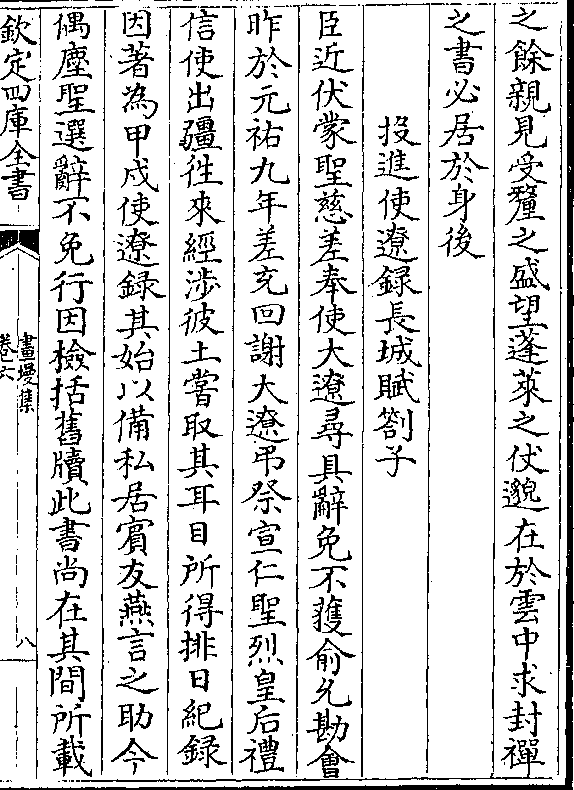 之餘親見受釐之盛望蓬萊之仗邈在於雲中求封禪
之書必居於身後
投進使遼録長城賦劄子
臣近伏蒙聖慈差奉使大遼尋具辭免不獲俞允勘會
昨於元祐九年差充回謝大遼弔祭宣仁聖烈皇后禮
信使出疆徃來經渉彼土嘗取其耳目所得排日紀録
因著為甲戍使遼録其始以備私居賓友燕言之助今
偶塵聖選辭不免行因檢括舊牘此書尚在其間所載
欽定四庫全書
畫墁集
卷六
八